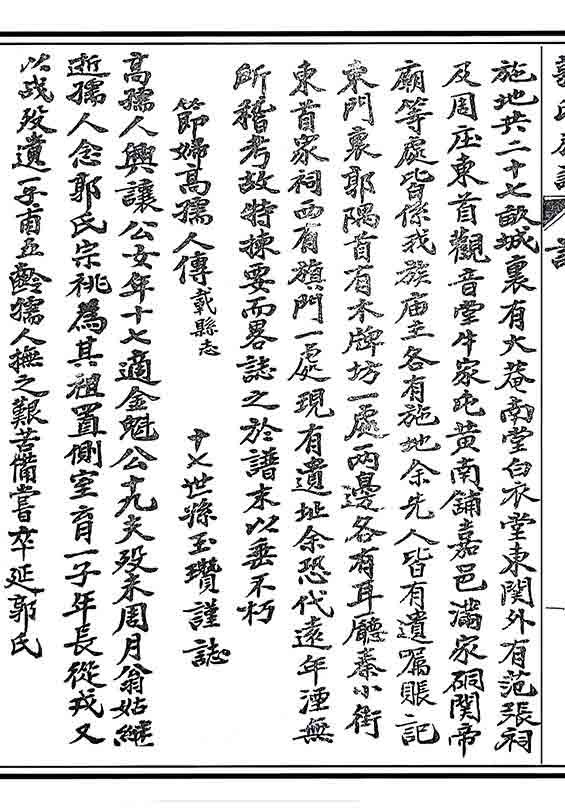 施地共二十七畝城裏有大菴南堂白衣堂東関外有范張祠
及周庄東首觀音堂牛家屯黄南舖嘉邑滿家硐関帝
廟等處皆係我族庙主各有施地余先人皆有遺嘱賬記
東門裏郭隅首有木牌坊一處兩邊各有耳廳秦小街
東首家祠西有旗門一處現有遺址余恐代遠年湮無
所稽考故特揀要而畧誌之於譜末以垂不朽
十七世孫玉瓚謹誌
節婦高孺人傳載縣志
高孺人興讓公女年十七適金魁公十九夫殁未周月翁姑継
逝孺人念郭氏宗祧為其祖置側室育一子年長從戎又
以戰殁遺一子甫五齡孺人撫之艱苦備嘗卒延郭氏